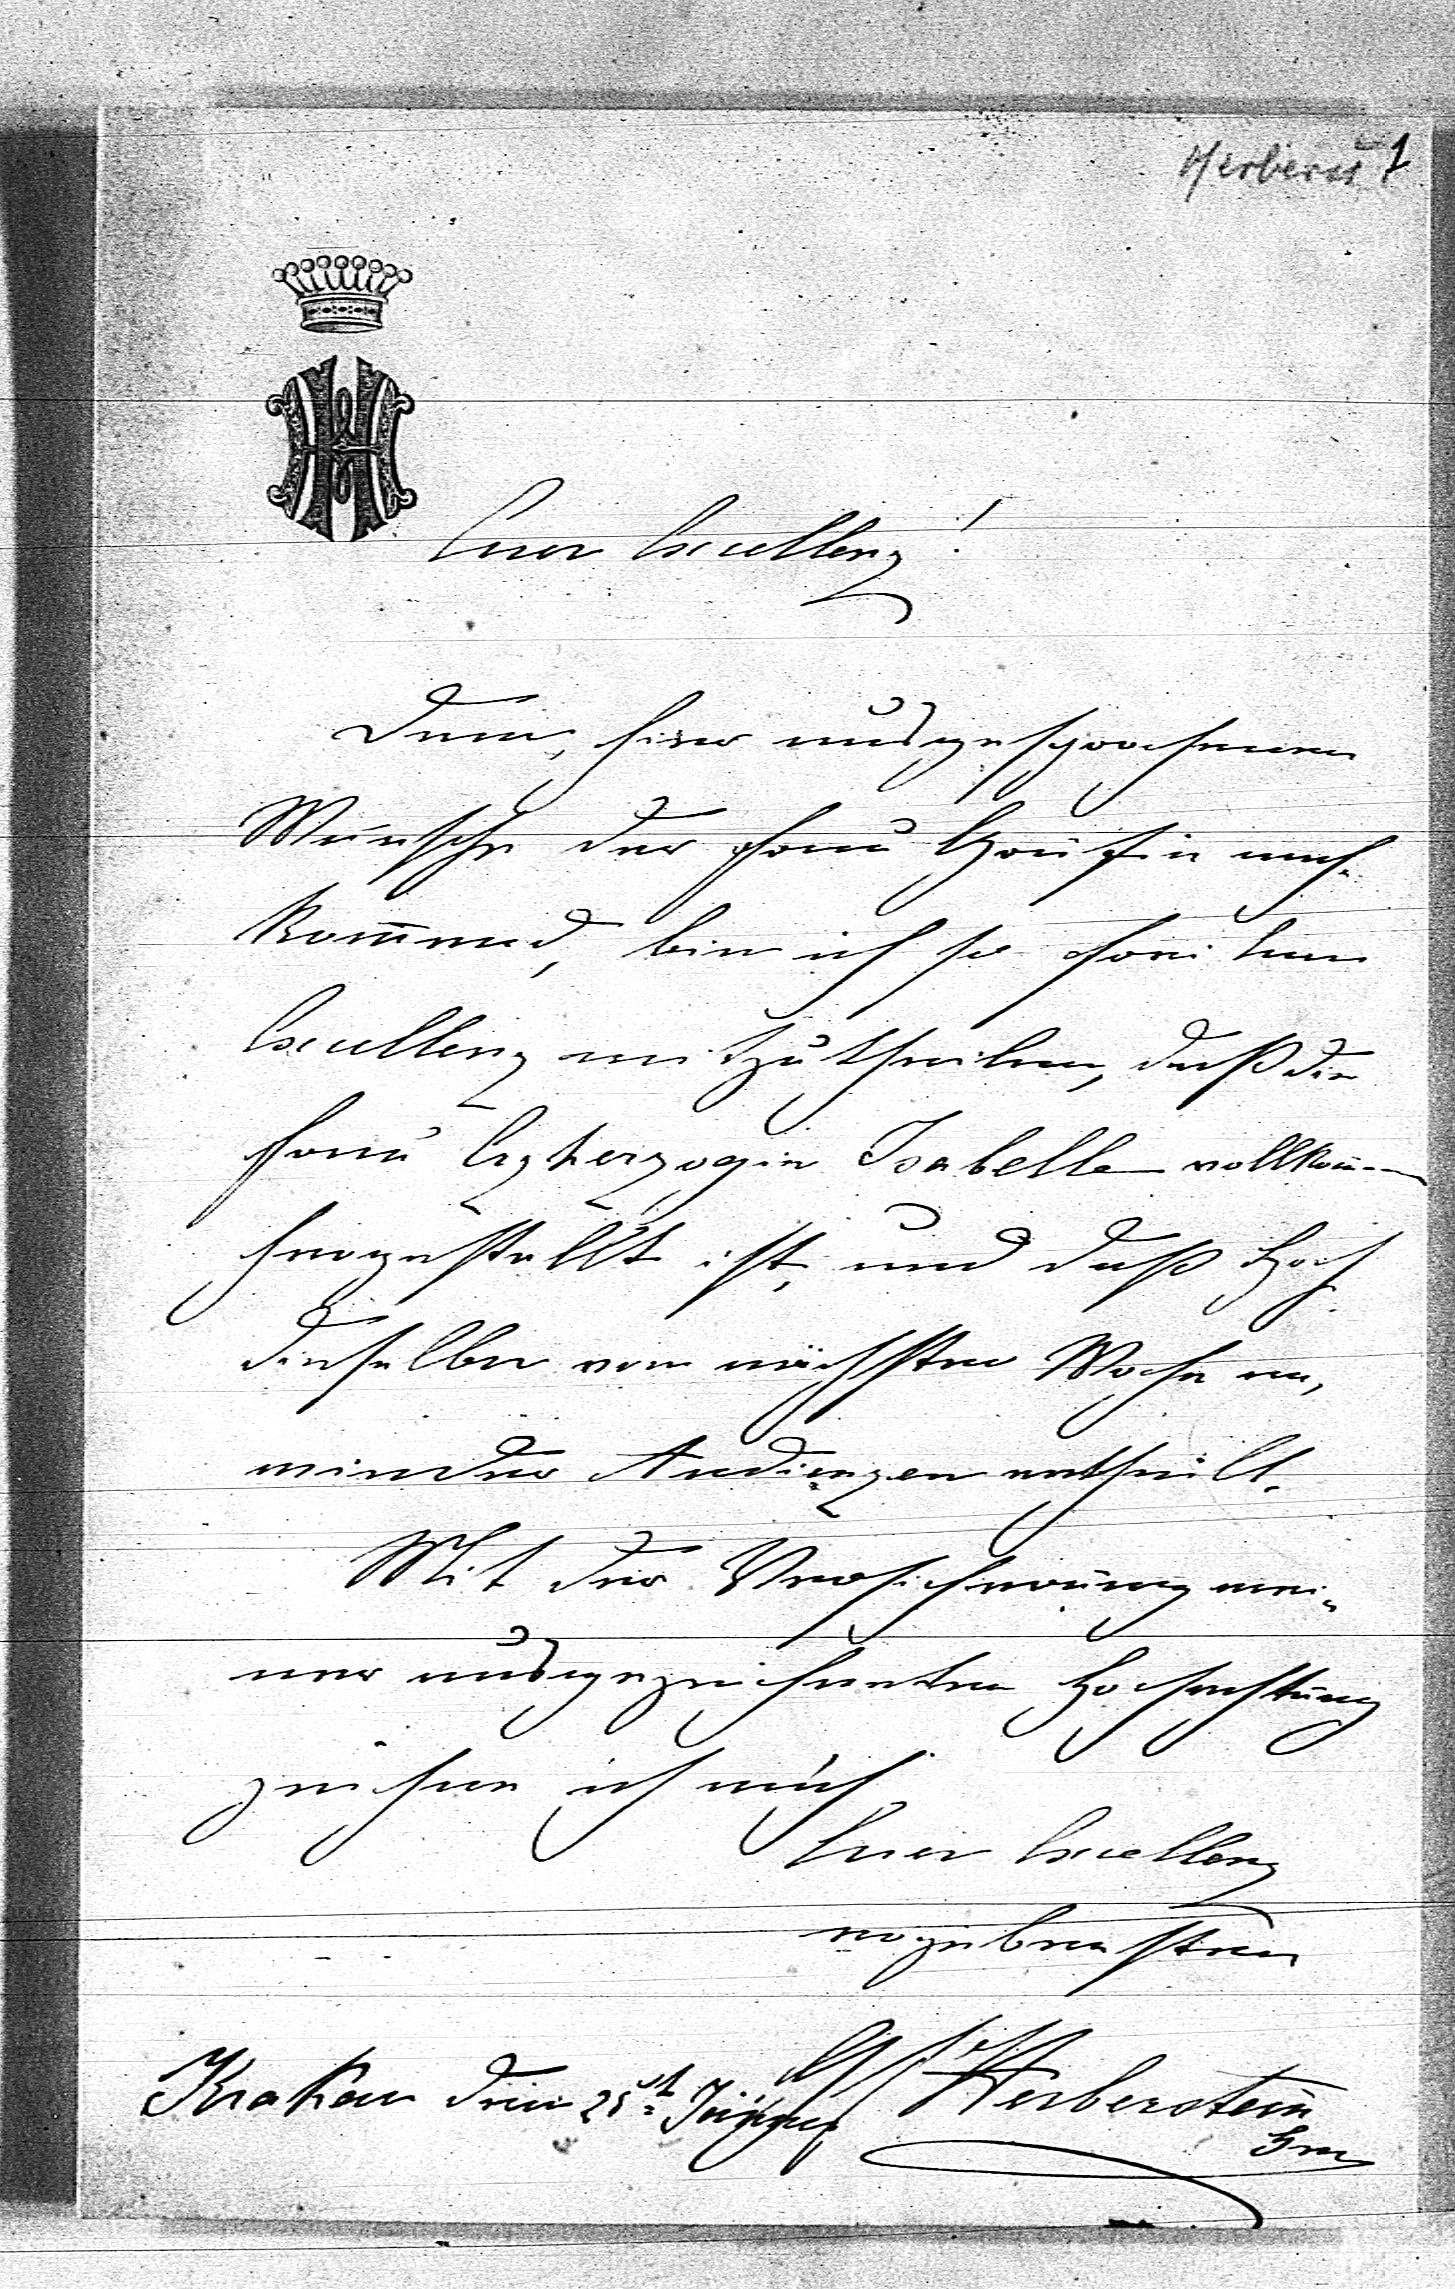 Herberst 1
Euer Excellenz!
Dem, hier ausgesprochenen
Wunsche der Frau Gräfin nach-
kommend, bin ich so frei Euer
Excellenz mitzutheilen, daß die
Frau Erzherzogin Isabella vollkommen
hergestellt ist, und daß Hoch
dieselbe von nächster Woche an,
wieder Audienzen ertheilt.
Mit der Versicherung mei-
ner ausgezeichneten Hochachtung
zeichne ich mich
Euer Excellenz
ergebenster
Krakau den 25st Jänner Herberstein